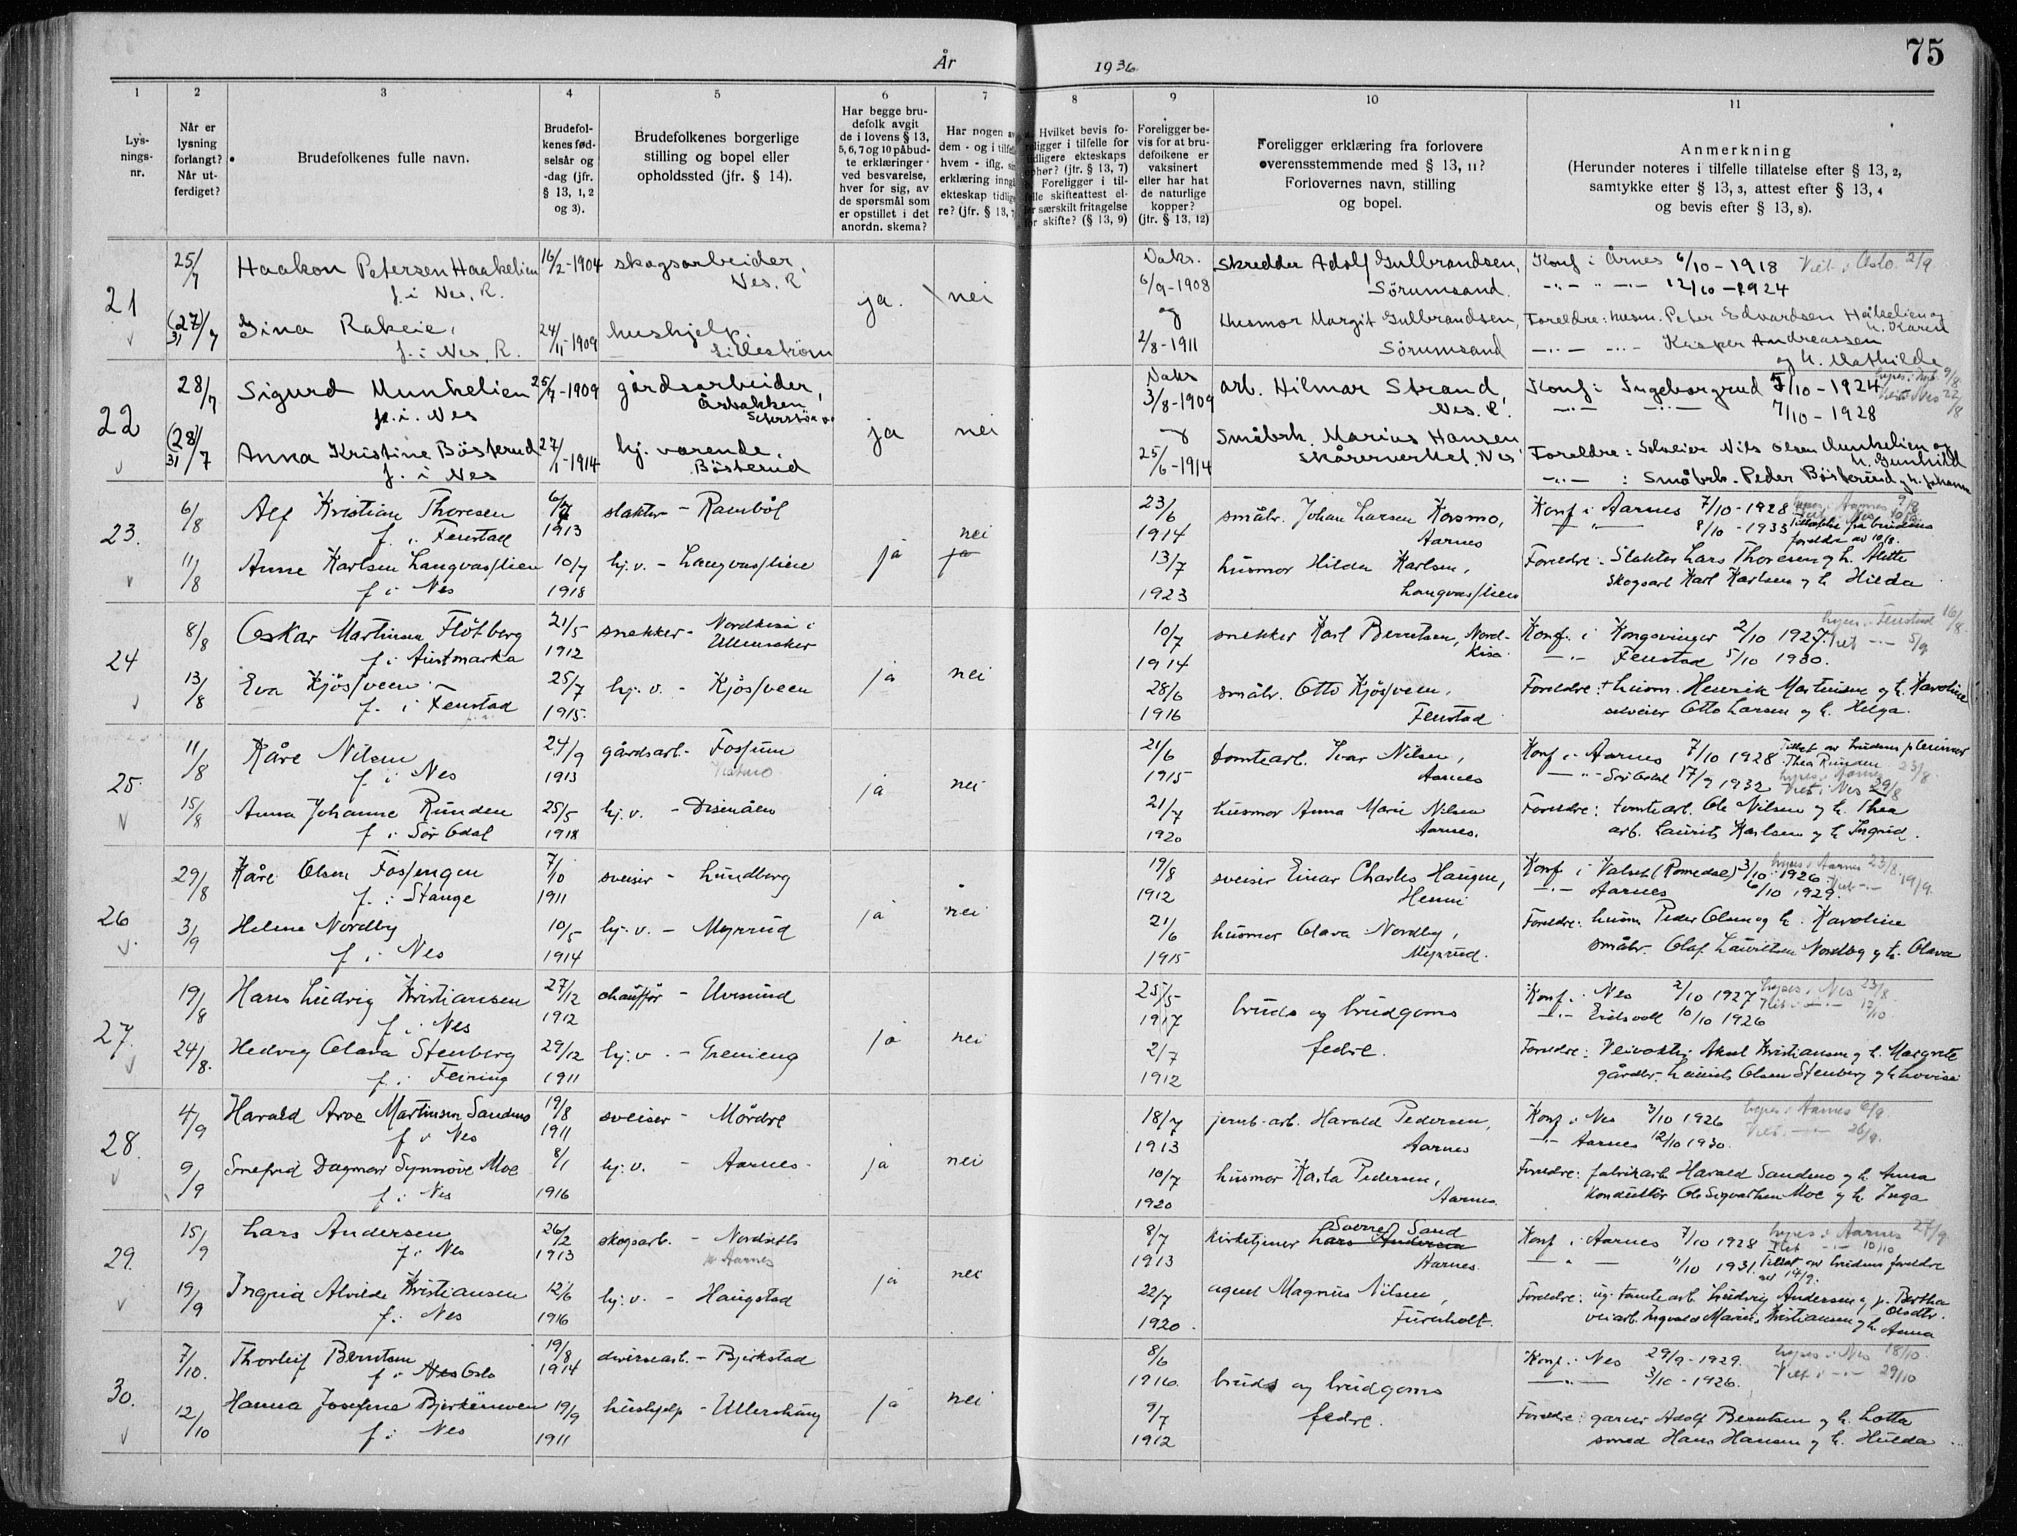 75
År 1936
1
Lysnings-nr.
2
Når er lysning forlangt? Når utferdiget?
3
Brudefolkenes fulle navn.
4
Brudefolkenes fødselsår og -dag (jfr. § 13, 1, 2 og 3).
5
Brudefolkenes borgerlige stilling og bopel eller opholdssted (jfr. § 14).
6
Har begge brudefolk avgit de i lovens § 13, 5, 6, 7 og 10 påbudte erklæringer ved besvarelse, hver for sig, av de spørsmål som er opstillet i det anordn. skema?
7
Har nogen av dem - og i tilfelle hvem -
erklæring inngå
ekteskap tidligere? (jfr. § 13, 7
8
Hvilket bevis foreligger i tilfelle for tidligere ekteskaps ophør? (jfr. § 13, 7)
Foreligger i tilfelle skifteattest eller særskilt fritagelse for skifte? (§ 13, 9)
9
Foreligger bevis for at brudefolkene er vaksinert eller har hat de naturlige kopper? (jfr. § 13, 12)
10
Foreligger erklæring fra forlovere overensstemmende med § 13, 11? Forlovernes navn, stilling og bopel.
11
Anmerkning
(Herunder noteres i tilfelle tillatelse efter § 13, 2, samtykke efter § 13, 3, attest efter § 13, 4 og bevis efter § 13, 8).
21
25/7 Haakon Petersen Haakelien 16/2-1904 skogsarbeider, Vaks. Skredder Adolf Gulbrandsen, Konf i Årnes 6/10-1918 Viet i Oslo 2/9
f. i Nes, R. Nes, R ja. nei 6/9-1908 Sörumsand. -"- " -"- 12/10-1924
(27)/31/7 Gina Rakeie, 24/11-1909 hushjelp. og Husmor Margit Gulbrandsen, Foreldre: husm. Peter Edvardsen og h. Karen
f. i Nes, R. Lilleström 2/8-1911 Sörumsand -"- Kasper Andreassen
og h. Mathilde
22
28/7 Sigurd Munkelien 25/7-1909 gårdsarbeider, Vaks arb. Hilmar Strand, Konf i Ingeborgrud 5/10-1924
f. i Nes Årbakken ja nei 3/8-1909 Nes R. -"- 7/10-1928
(28)/31/7 Anna Kristine Bösterud 27/1-1914 hj. værende, og Småbrk. Marius Hansen Foreldre: Selveier Nils Olsen Munkelien og h. Gunhild
f. i Nes Bösterud 25/6-1914 Skårerverket. Nes -"- : Småbrk. Peder Bösterud og h. Johanne
23.
6/8 Alf Kristian Thoresen 6/7 1913 slakter - Ramböl 23/6 1914 småbr. Johan Larsen Kosmo, Konf i Aarnes 7/10-1928
f. i Fenstad nei Aarnes 8/10-1933 Tillatelse fra brudens foreldre av 10/8.
11/8 Anne Karlsen Langvasslien 10/7 1918 hj.v. - Langvasslien ja ja 13/7 1923 husmor Hilda Karlsen, Foreldre: Slakter Lars Thoresen og h. Mette
f i Nes Langvasslien skogsarb Karl Karlsen og h. Hilda
24
8/8 Oskar Martinsen Flötberg 21/5 1912 snekker - Nordkisa i Ullensaker 10/7 1914 snekker Karl Berntsen, Nordkisa Konf. i Kongsvinger 2/10 1927. lyses i Fenstad 16/8
f i Austmarka ja nei -"- Fenstad 5/10 1930. Viet -"- 5/9
13/8 Eva Kjössveen 25/7 1915. hj.v. - Kjössveen 28/6 1916 småbr. Otto Kjössveen, Foreldre: husm. Henrik Martinsen og h. Karoline
f. i Fenstad Fenstad selveier Otto Larsen og h. Helga.
25.
11/8 Kåre Nilsen 24/9 1913 gårdsarb. - Fossum 21/6 1915 tomtearb. Ivar Nilsen, Konf i Aarnes 7/10 1928
f i Nes ja nei Aarnes -"- Sör Odal 17/9 1932 Viet i Nes 29/8
15/8 Anna Johanne Runden 25/5 1918 hj.v. - Disenåen 21/7 1920 husmor Anna Marie Nilsen Foreldre: tomtearb. Ole Nilsen og h. Thea
f i Sör Odal Aarnes. arb. Laurits Karlsen og h Ingrid.
26
29/8 Kåre Olsen Fossengen 7/10 1911 sveiser - Lundberg 19/8 1912 sveiser Einar Charles Haugen, Konf i Valset (Romedal) 3/10 1926 lyses i Aarnes 23/8.
f. i Stange ja nei Henni -"- Aarnes 6/10 1929. Viet -"- 19/9.
3/9 Helene Nordby 10/5 1914 hj.v. - Myrrud 21/6 1915 husmor Olava Nordby, Foreldre: husm Peder Olsen og h. Karoline
f i Nes Myrrud. småbr. Olaf Lauritsen Nordby og h. Olava
27.
19/8 Hans Ludvig Kristiansen 27/12 1912 chauffør - Uvesund 25/5 1917 bruds og brudgoms Konf. i Nes 2/10 1927 lyses i Nes 23/8
f. i Nes ja nei -"- Eidsvoll 10/10 1926
24/8. Hedvig Olava Stenberg 29/12 1911 hj.v. - Grenieng 2/7 1912 fedre. Foreldre: Veivokter Aksel Kristiansen og h. Margrete
f. i Feiring gårdbr. Laurits Olsen Stenberg og h Lovise
28.
4/9 Harald Arve Martinsen Sandmo 19/8 1911 sveiser - Mårdre 18/7 1913 jernb.arb. Harald Pedersen, Konf i Nes 3/10 1926 lyses i Aarnes 6/9
f i Nes Aarnes -"- Aarnes 12/10 1930. Viet -"- 26/9.
9/9 Snefrid Dagmar Synnöve Moe 8/1 1916 hj.v. - Aarnes ja nei 10/7 1920 husmor Karla Pedersen, Foreldre: fabrikarb Harald Sandmo og h Anna
f i Nes Aarnes. Konduktör Ole Sigvartsen Moe og h. Inga
29.
15/9 Lars Andersen 26/2 1913 skogsarb. - 8/7 1913 kirketjener Lars Andersen Sverre Sand Konf i Aarnes 7/10 1928 lyses i Aarnes 27/9
f i Nes p Aarnes ja nei Aarnes. -"- 11/10 1931. Tillat av brudens foreldre av 14/9.
19/9 Ingrid Alvilde Kristiansen 12/6 1916 hj.v. - Haugstad 22/7 1920. agent Magnus Nilsen, Foreldre: ug. tomtearb. Ludvig Andersen og p. Bertha Olsdtr.
f i Nes Furuholt. veiarb. Ingvald Marius Kristiansen og h. Anna
30.
7/10. Thorleif Berntsen 19/8 1914 diversearb. - Bjerkstad 8/6 1916. bruds og brudgoms Konf. i Nes 29/9-1929. lyses i Nes 18/10.
f i Nes Oslo ja nei -"- 3/10-1926. Viet i -"- 29/10
12/10 Hanna Josefine 19/9 1911 hushjelp - 9/7 1912 fedre. Foreldre: garver Adolf Berntsen og h. Lotta
f i Nes smed Hans Hansen og h. Hulda